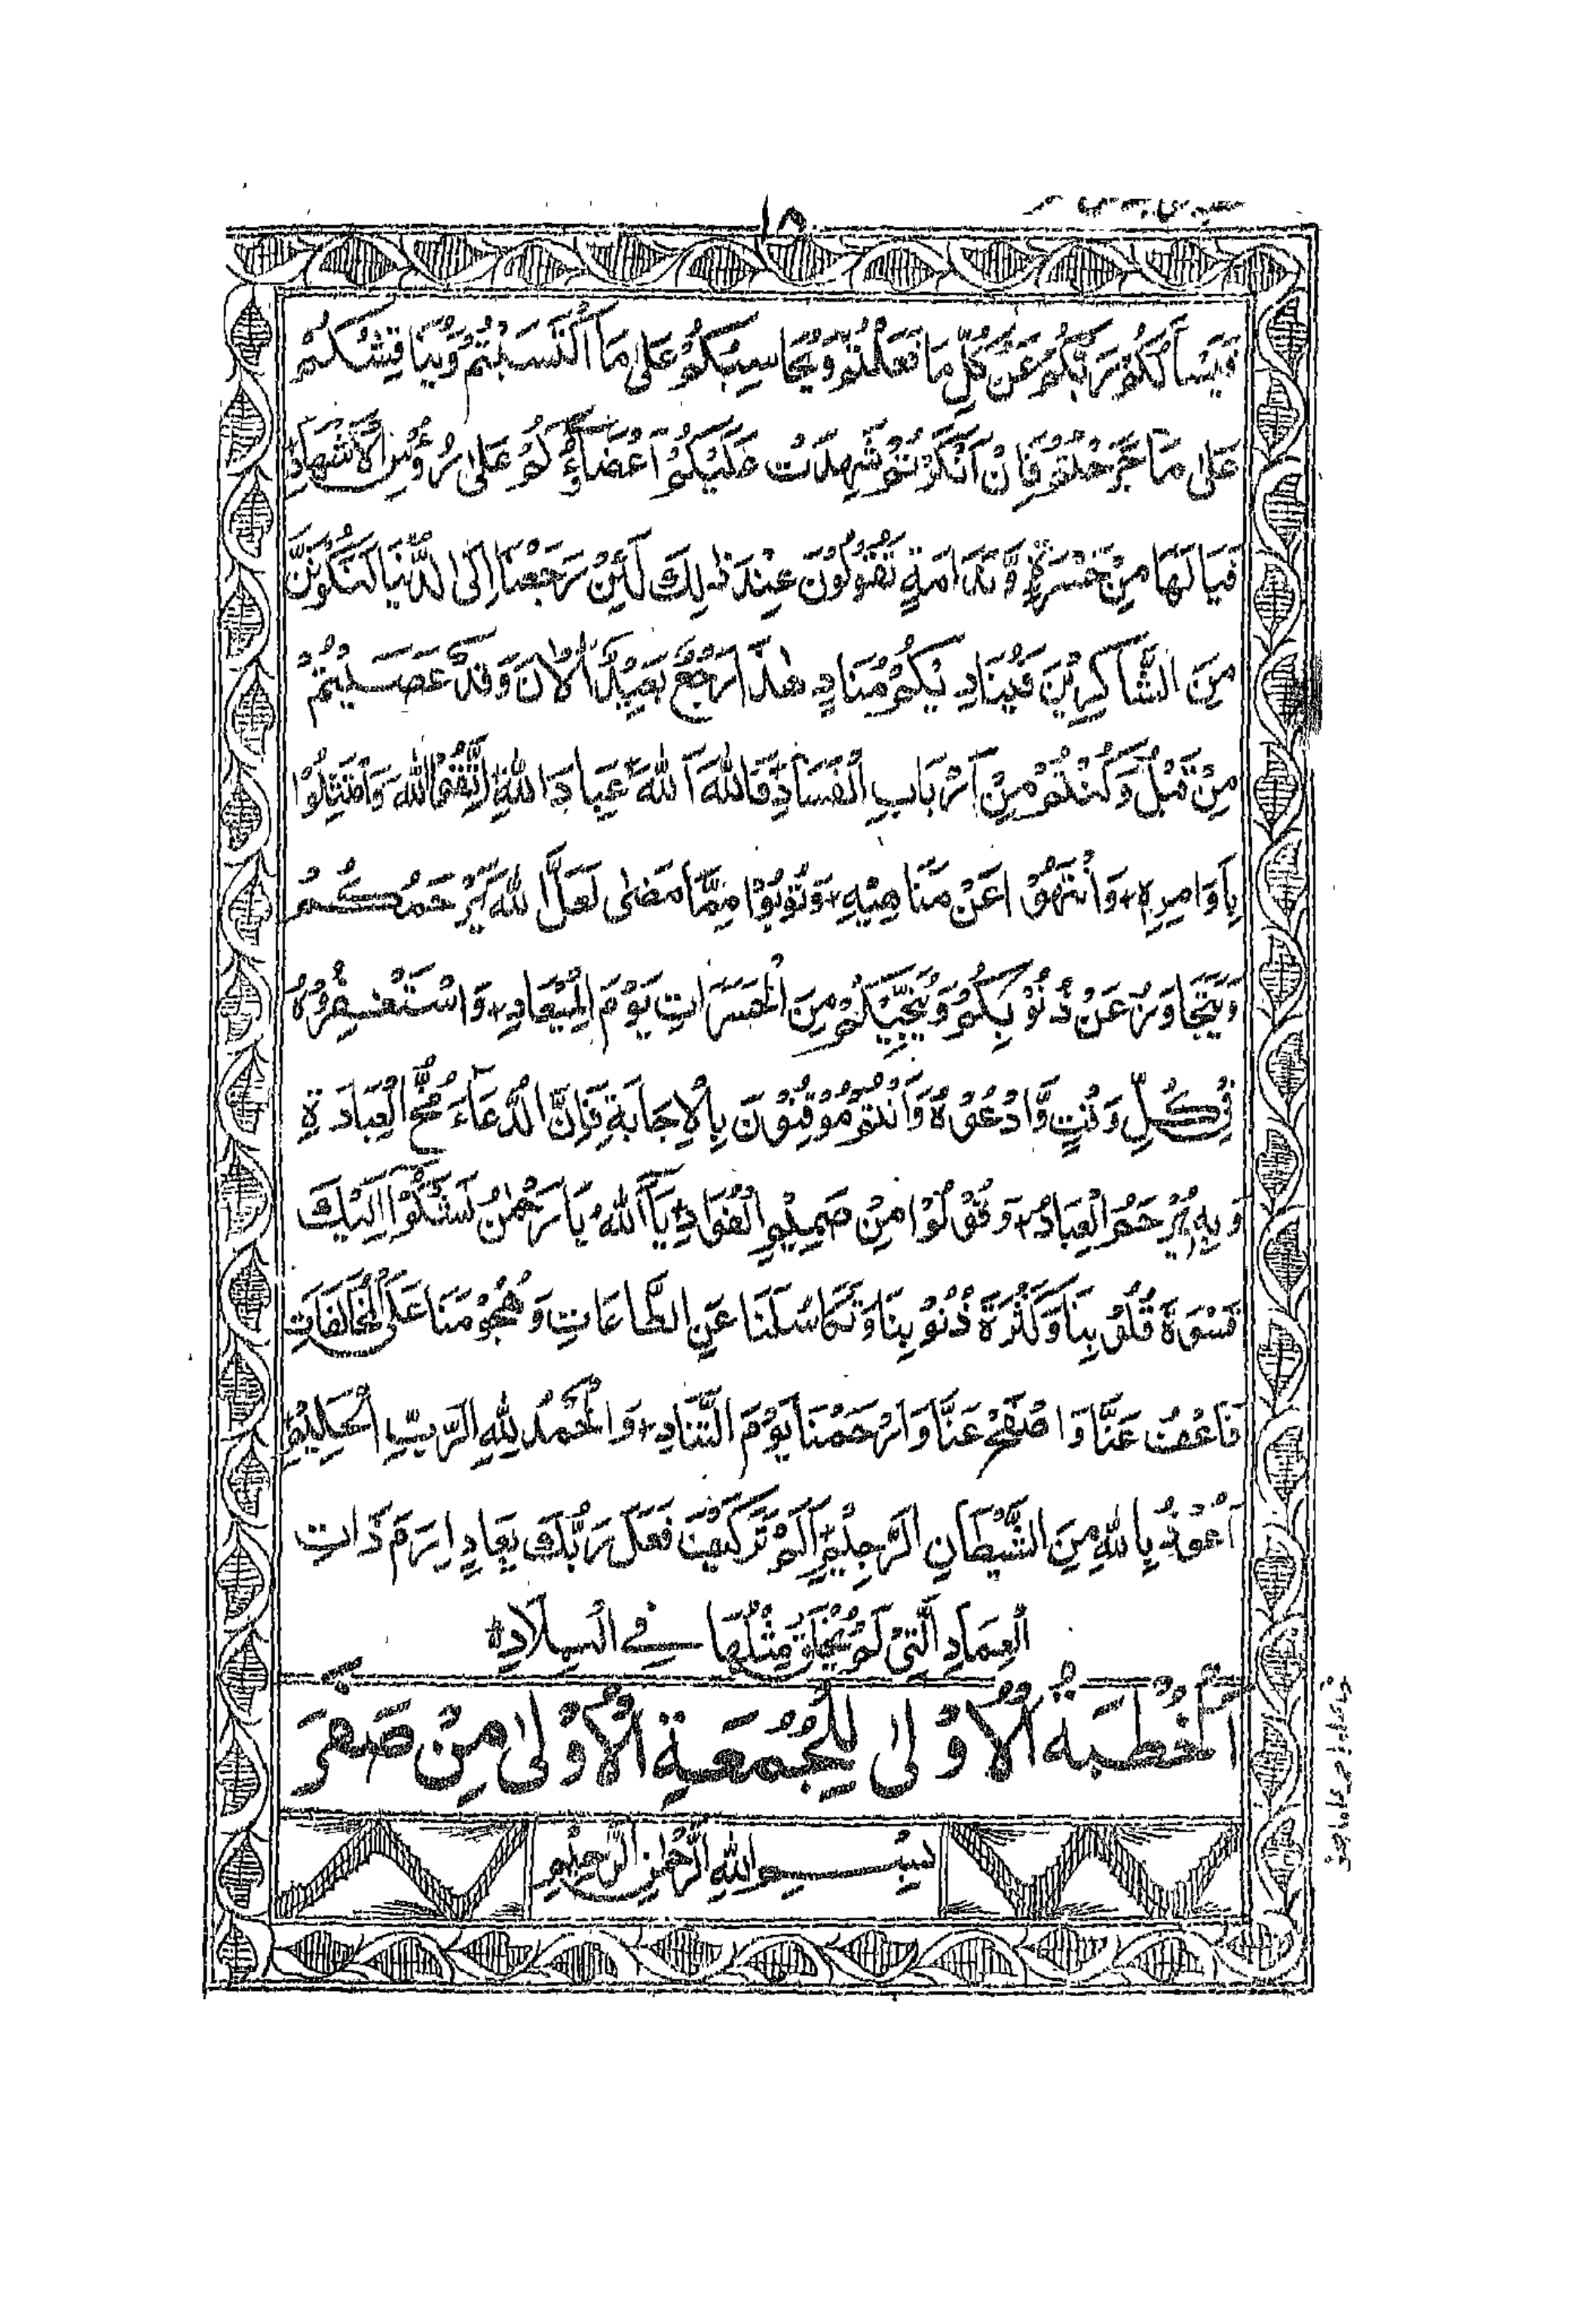 ١٥
فَيَسْأَلُكُمْ رَبُّكُمْ عَنْ كُلِّ مَا فَعَلْتُمْ وَيُحَاسِبُكُمْ عَلٰى مَا اكْتَسَبْتُمْ وَيُنَاقِشُكُمْ
عَلٰى مَا جَرَحْتُمْ فَاِنْ اَنْكَرْتُمْ شَهِدَتْ عَلَيْكُمْ اَعْضَاؤُكُمْ عَلٰى رُؤُسِ الْاَشْهَادِ
فَيَا لَهَا مِنْ حَسْرَةٍ وَّنَدَامَةٍ تَقُوْلُوْنَ عِنْدَ ذٰلِكَ لَئِنْ رَجَعْنَا اِلَى الدُّنْيَا لَنَكُوْنَنَّ
مِنَ الشَّاكِرِيْنَ فَيُنَادِيْكُمْ مُنَادٍ هٰذَا رَجْعٌ بَعِيْدٌ اَلْاٰنَ وَقَدْ عَصَيْتُمْ
مِنْ قَبْلُ وَكُنْتُمْ مِنْ اَرْبَابِ الْفَسَادِ فَاللّٰهَ اَللّٰهَ عِبَادَ اللّٰهِ اتَّقُوا اللّٰهَ وَامْتَثِلُوْا
بِاَوَامِرِهٖ وَانْتَهُوْا عَنْ مَنَاهِيْهِ وَتُوْبُوْا مِمَّا مَضٰى لَعَلَّ اللّٰهَ يَرْحَمُكُمْ
وَيَتَجَاوَزُ عَنْ ذُنُوْبِكُمْ وَيُنَجِّيْكُمْ مِنَ الْحَسَرَاتِ يَوْمَ الْمِيْعَادِ وَاسْتَغْفِرُوْهُ
فِيْ كُلِّ وَقْتٍ وَّادْعُوْهُ وَاَنْتُمْ مُوْقِنُوْنَ بِالْاِجَابَةِ فَاِنَّ الدُّعَاءَ مُخُّ الْعِبَادَةِ
وَبِهٖ يُرْحَمُ الْعِبَادُ وَقُوْلُوْا مِنْ صَمِيْمِ الْفُوَادِ يَا اَللّٰهُ يَا رَحْمٰنُ نَشْكُوْا اِلَيْكَ
قَسْوَةَ قُلُوْبِنَا وَكَثْرَةَ ذُنُوْبِنَا وَتَكَاسُلَنَا عَنِ الطَّاعَاتِ وَهُجُوْمَنَا عَلَى الْمُخَالَفَاتِ
فَاعْفُ عَنَّا وَاصْفَحْ عَنَّا وَارْحَمْنَا يَوْمَ التَّنَادِ وَالْحَمْدُ لِلّٰهِ الرَّبِّ الْحَلِيْمِ
اَعُوْذُ بِاللّٰهِ مِنَ الشَّيْطَانِ الرَّجِيْمِ اَلَمْ تَرَ كَيْفَ فَعَلَ رَبُّكَ بِعَادٍ اِرَمَ ذَاتِ
الْعِمَادِ الَّتِيْ لَمْ يُخْلَقْ مِثْلُهَا فِي الْبِلَادِ
اَلْخُطْبَةُ الْاُوْلٰى لِلْجُمُعَةِ الْاُوْلٰى مِنْ صَفَرَ
بِسْمِ اللّٰهِ الرَّحْمٰنِ الرَّحِيْمِ